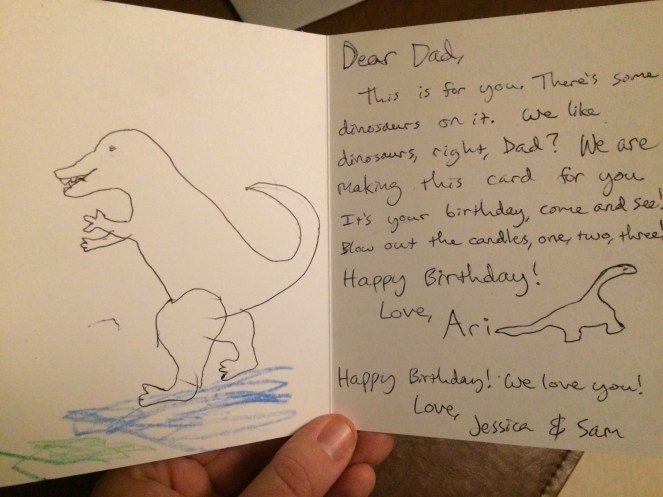 Dear Dad,
This is for you. There's some
dinosaurs on it. We like
dinosaurs, right, Dad? We are
making this card for you
It's your birthday, come and see!
Blow out the candles, one, two, three!
Happy Birthday!
Love,
Ari
Happy Birthday! We love you!
Love,
Jessica & Sam